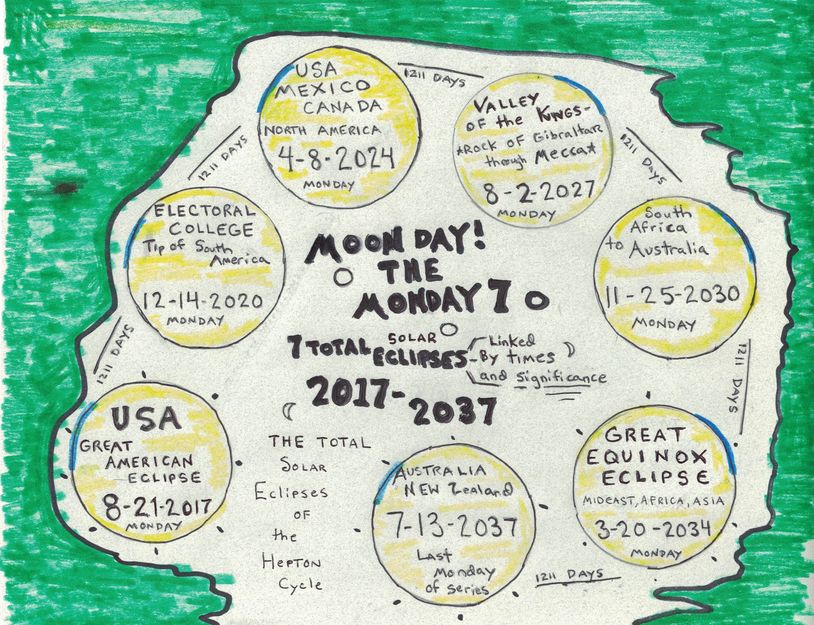 USA
MEXICO
CANADA
NORTH AMERICA
4-8-2024
MONDAY
1211 DAYS
VALLEY
OF the KINGS-
*Rock of Gibraltar
through Mecca*
8-2-2027
MONDAY
1211 DAYS
1211 DAYS
ELECTORAL
COLLEGE
Tip of South
America
12-14-2020
MONDAY
South
Africa
to Australia
11-25-2030
MONDAY
MOON DAY!
THE
MONDAY 7
7 TOTAL SOLAR ECLIPSES
Linked
By times
and significance
2017-
2037
1211 DAYS
1211 DAYS
USA
GREAT
AMERICAN
ECLIPSE
8-21-2017
MONDAY
THE TOTAL
Solar
Eclipses
OF
the
HEPTON
Cycle
AUSTRALIA
NEW Zealand
7-13-2037
Last
Monday
of series
GREAT
EQUINOX
ECLIPSE
MIDEAST, AFRICA, ASIA
3-20-2034
MONDAY
1211 DAYS